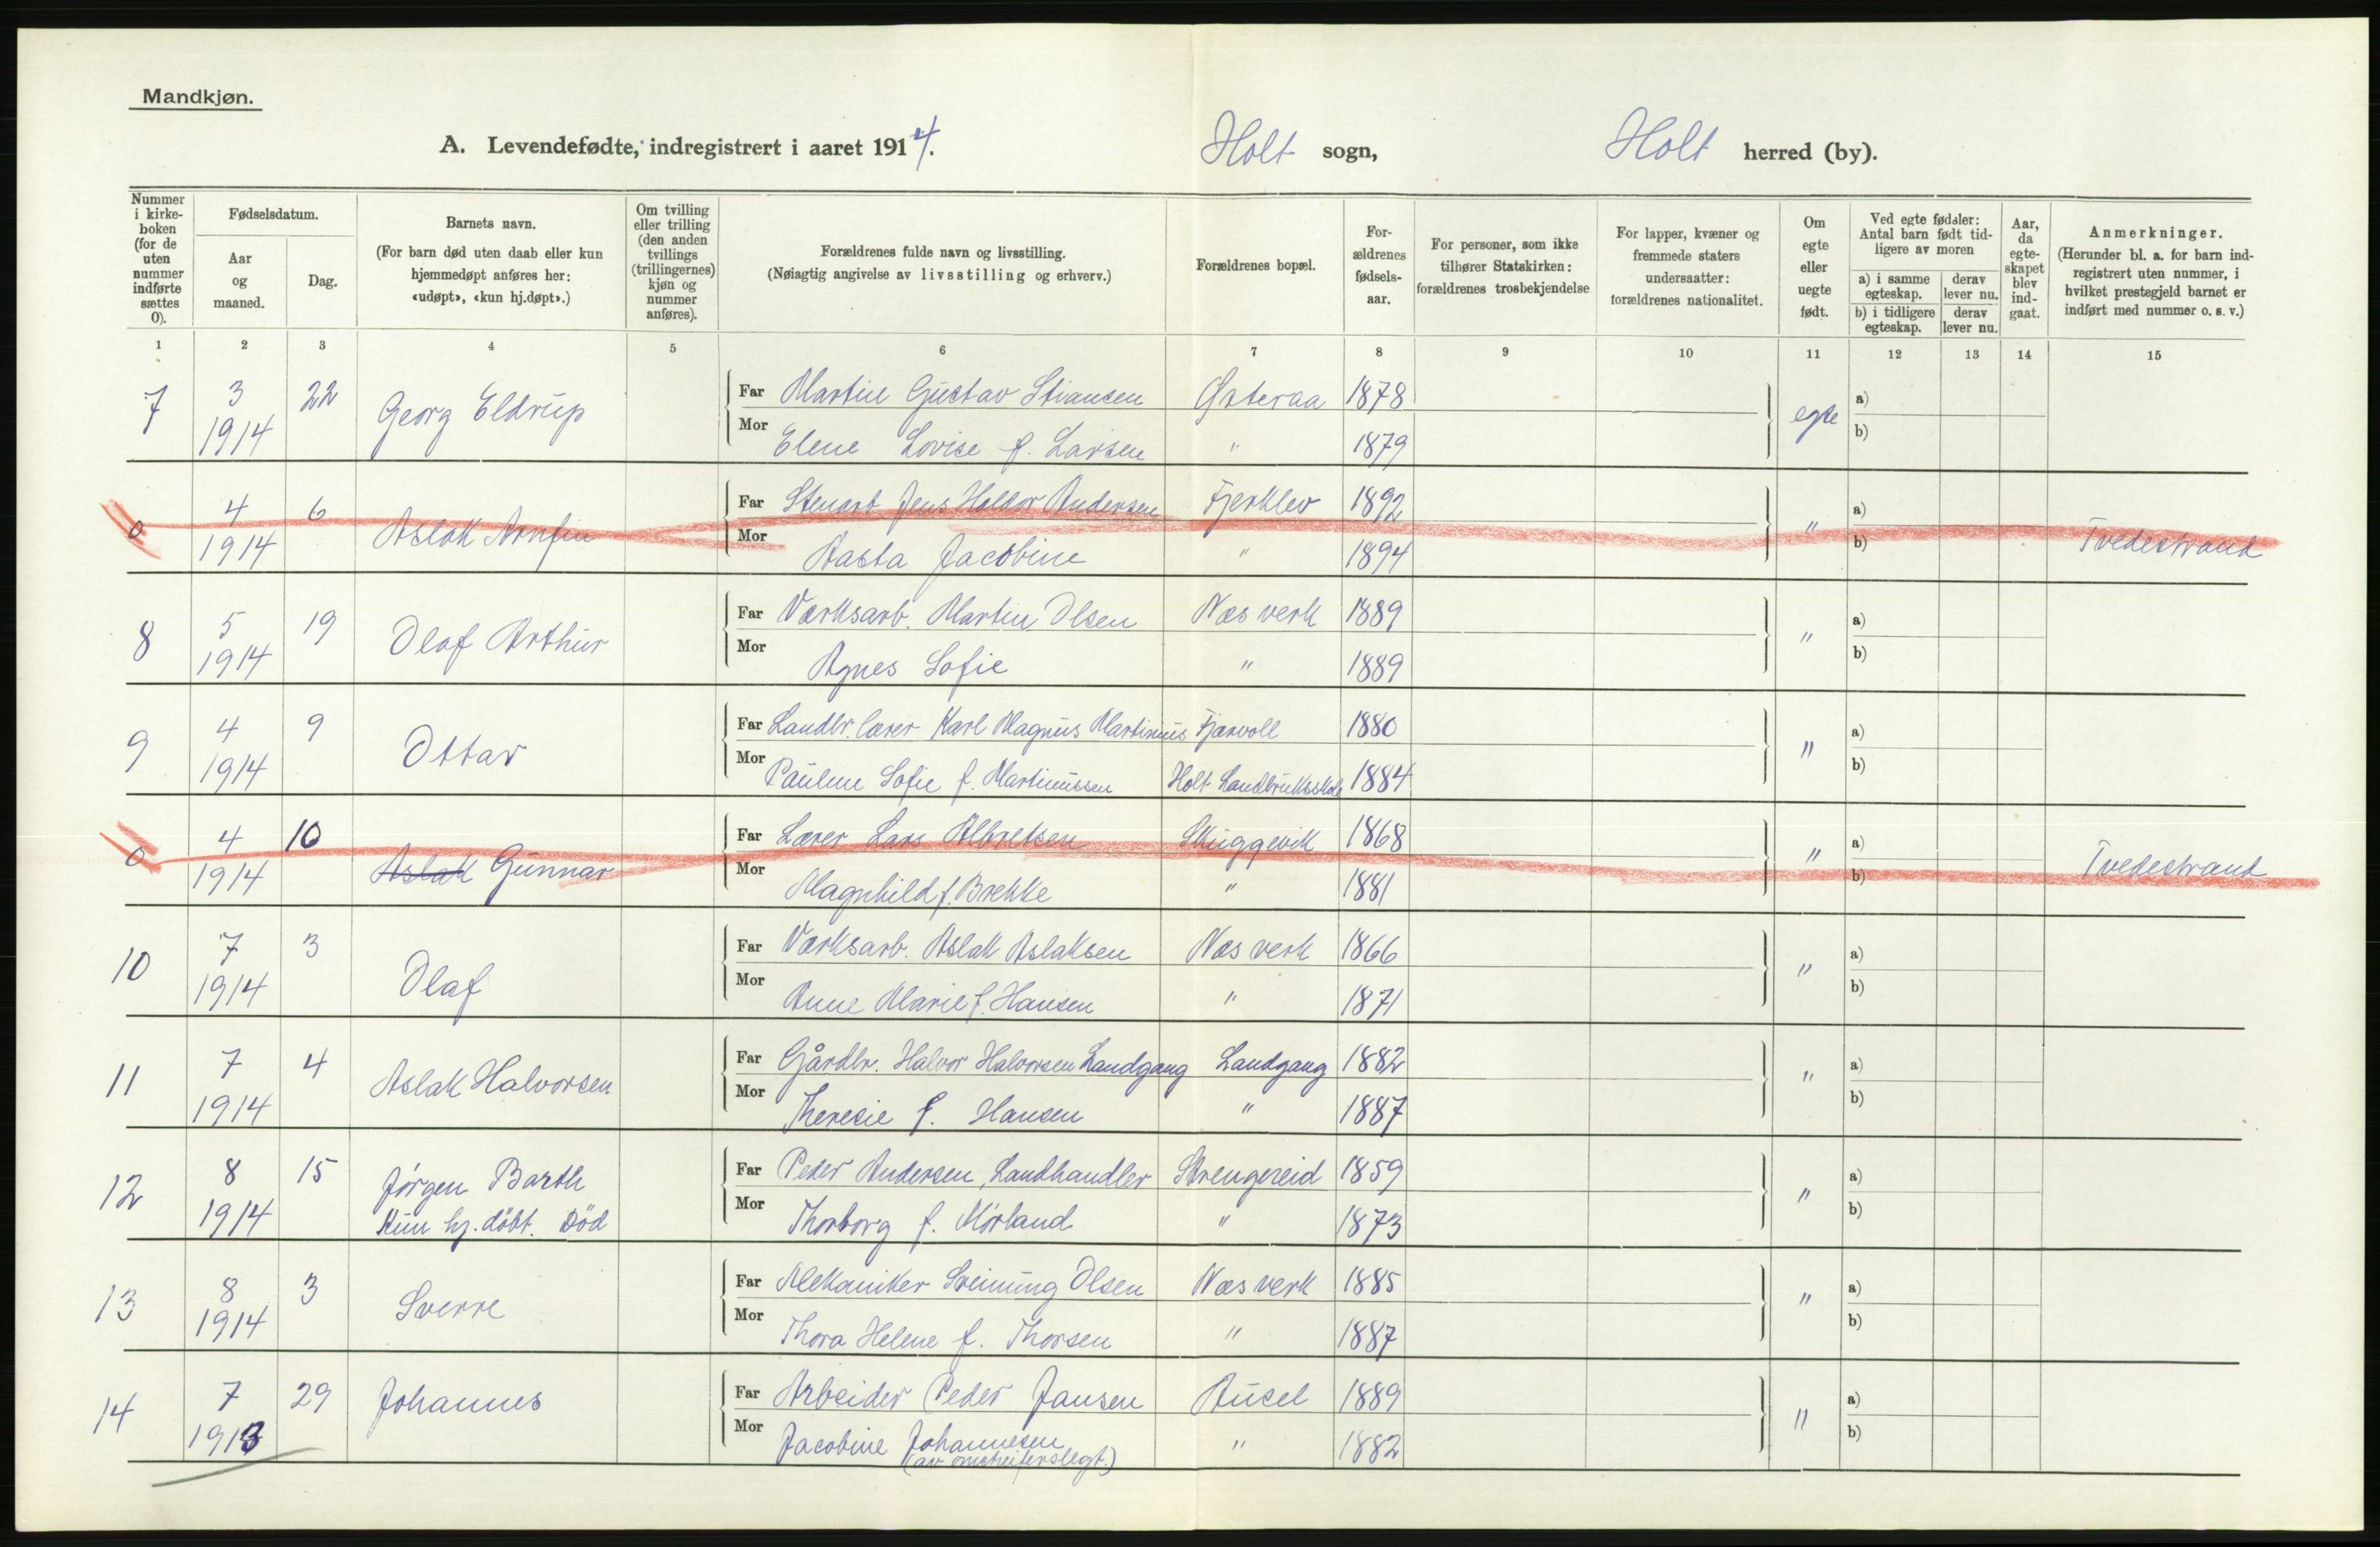 Mandkjøn.
A. Levendefødte, indregistrert i aaret 1914. Holt sogn, Holt herred (by).
Nummer i kirkeboken (for de uten nummer indførte sættes 0).
Fødselsdatum.
Aar og maaned.
Dag.
Barnets navn.
(For barn død uten daab eller kun hjemmedøpt anføres her: «udøpt», «kun hj.døpt».)
Om tvilling eller trilling (den anden tvillings (trillingernes) kjøn og nummer anføres).
Forældrenes fulde navn og livsstilling.
(Nøiagtig angivelse av livsstilling og erhverv.)
Forældrenes bopæl.
For-ældrenes fødsels-aar.
For personer, som ikke tilhører Statskirken: forældrenes trosbekjendelse
For lapper, kvæner og fremmede staters undersaatter: forældrenes nationalitet.
Om egte eller uegte født.
Ved egte fødsler: Antal barn født tid-ligere av moren
a) i samme egteskap. derav lever nu.
b) i tidligere egteskap. derav lever nu.
Aar, da egte-skapet blev ind-gaat.
Anmerkninger.
(Herunder bl. a. for barn ind-registrert uten nummer, i hvilket prestegjeld barnet er indført med nummer o. s. v.)
1 2 3 4 5 6 7 8 9 10 11 12 13 14 15
7 3 1914 22 Georg Eldrup Far Martin Gustav Stiansen Østeraa 1878 egte a)
Mor Elene Lovise f. Larsen " 1879 b)
0 4 1914 6 Aslak Arnfin Far Stuart Jens Haldor Andersen Fjerklev 1892 " a) Tvedestrand
Mor Aasta Jacobine " 1894 b)
8 5 1914 19 Olaf Arthur Far Værksarb. Martin Olsen Næs verk 1889 " a)
Mor Agnes Sofie " 1889 b)
9 4 1914 9 Ottar Far Landbr. lærer Karl Magnus Martinius Fjærvoll 1880 " a)
Mor Pauline Sofie f. Martinussen Holt Landbruksskole 1884 b)
0 4 1914 10 Aslak Gunnar Far Lærer Lars Albretsen Skuggevik 1868 " a) Tvedestrand
Mor Magnhild f. Brekke " 1881 b)
10 7 1914 3 Olaf Far Værksarb. Aslak Aslaksen Næs verk 1866 " a)
Mor Anne Marie f. Hansen " 1871 b)
11 7 1914 4 Aslak Halvorsen Far Gårdbr. Halvor Halvorsen Landgang Landgang 1882 " a)
Mor Theresie f. Hansen " 1887 b)
12 8 1914 15 Jørgen Barth Far Peder Andersen, Landhandler Strengereid 1859 " a)
Kun hj. döbt. Död Mor Thorborg f. Mörland " 1873 b)
13 8 1914 3 Sverre Far Mekaniker Sveinung Olsen Næs verk 1885 " a)
Mor Thora Helene f. Thorsen " 1887 b)
14 7 1913 29 Johannes Far Arbeider Peder Jansen Ausel 1889 " a)
Mor Jacobine Johannesen " 1882 b)